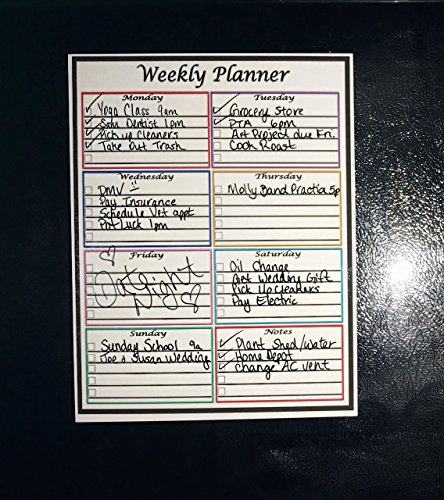 Weekly Planner
Monday
Yoga Class 9am
Sam Dentist 1pm
Pick up Cleaners
Take Out Trash
Tuesday
Grocery Store
PTA 6pm
Art Project due Fri.
Cook Roast
Wednesday
DMV
Pay Insurance
Schedule Vet appt
Pot Luck 1pm
Thursday
Molly Band Practice 5p
Friday
Date Night
Saturday
Oil Change
Get Wedding Gift
Pick Up Cleaners
Pay Electric
Sunday
Sunday School 9a
Joe & Susan Wedding
Notes
Plant Shed/water
Home Depot
Change AC vent